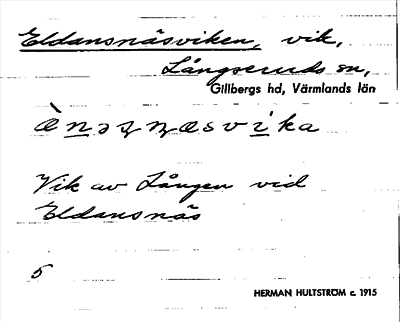 Eldansnäsviken, vik,
Långseruds sn,
Gillbergs hd, Värmlands län
Vik av Lången vid
Eldansnäs
5
HERMAN HULTSTRÖM c. 1915